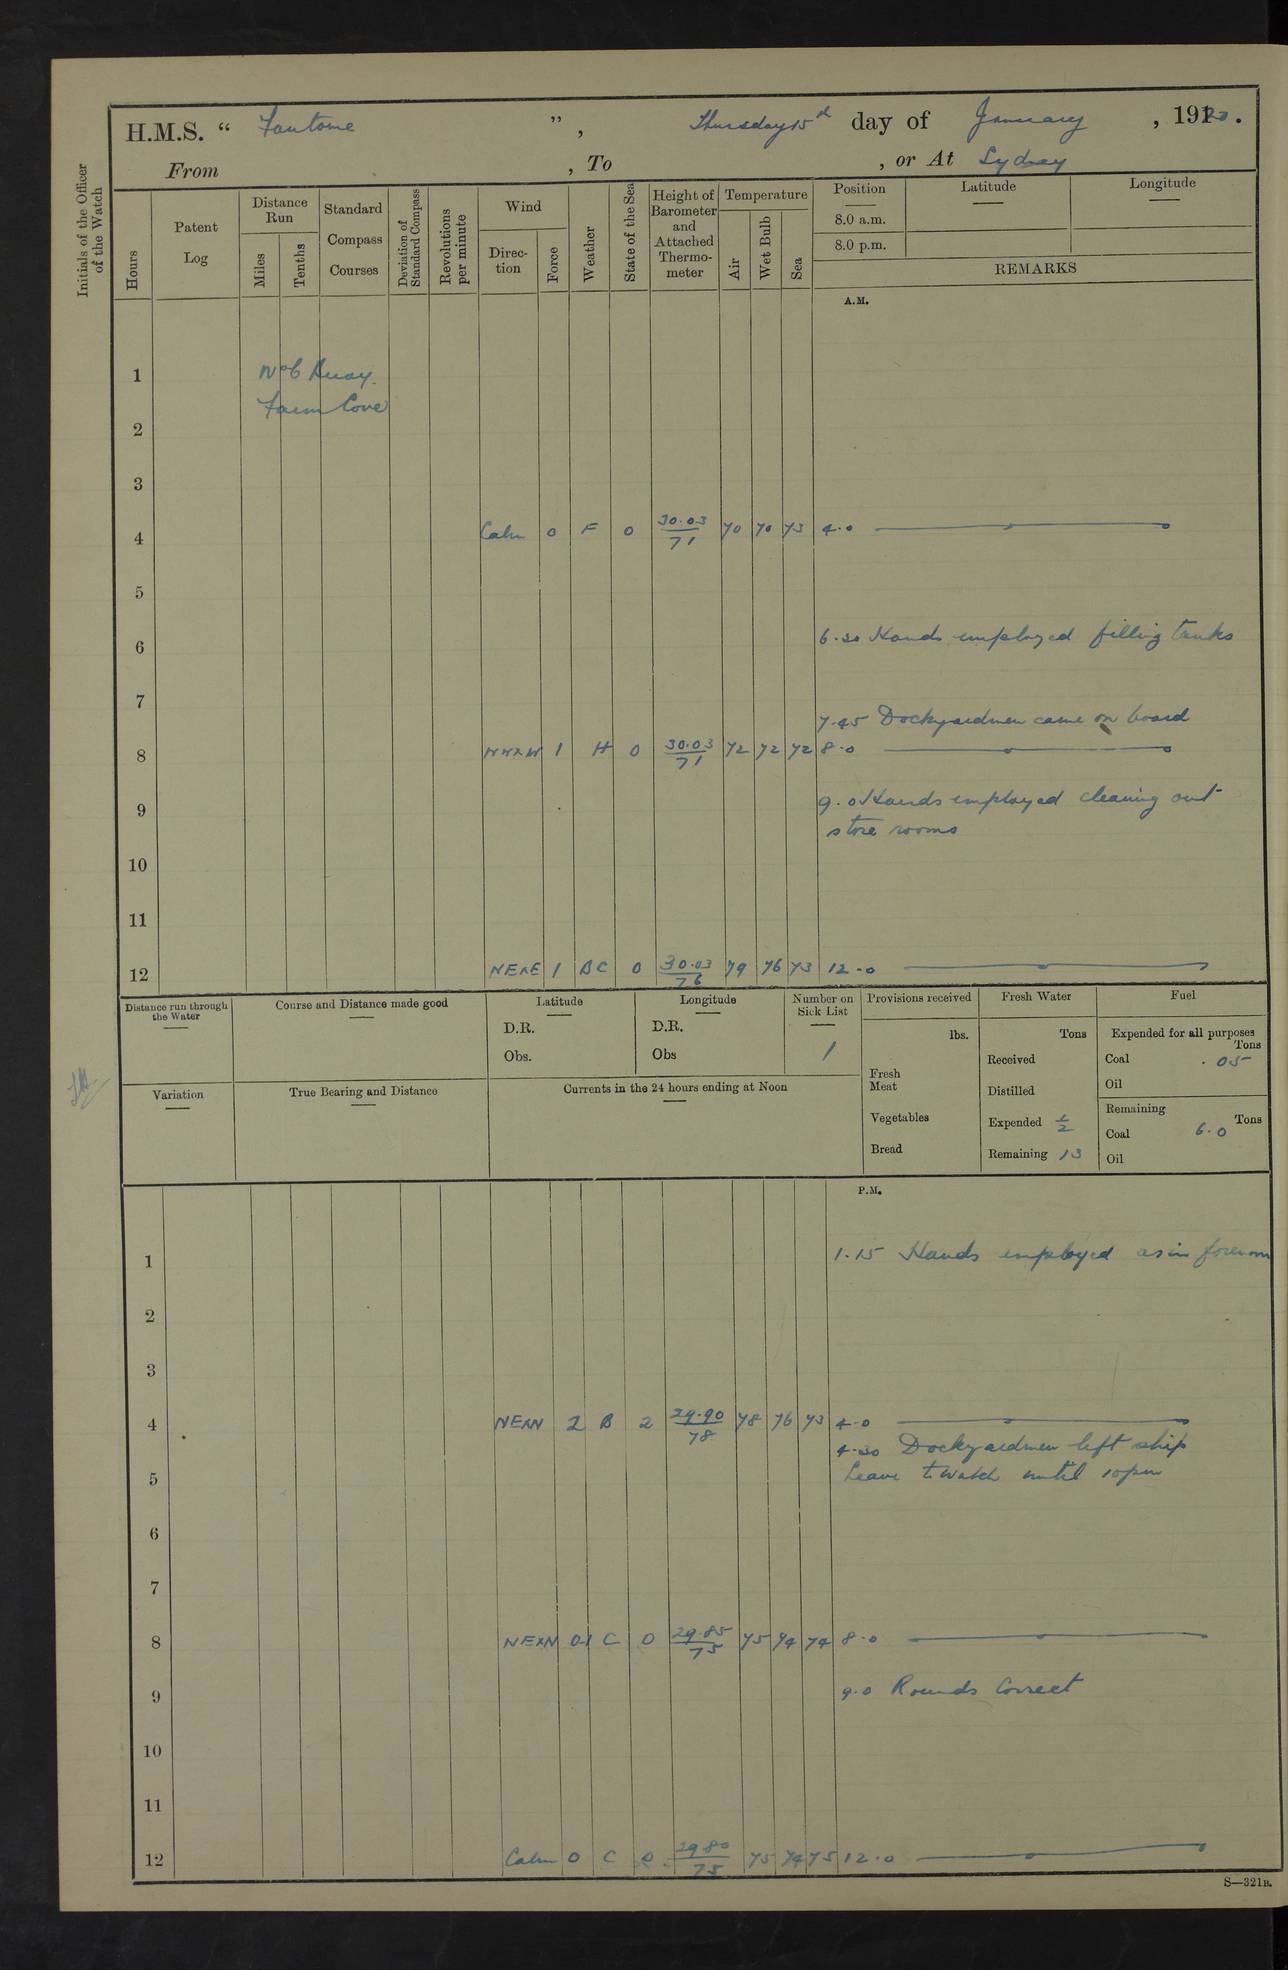 H.M.S. “ Fantome ”, Thursday 15th day of January, 1920.
From , To , or At Sydney
Initials of the Officer of the Watch
Hours
Patent Log
Distance Run
Miles
Tenths
Standard Compass Courses
Deviation of Standard Compass
Revolutions per minute
Wind
Direction
Force
Weather
State of the Sea
Height of Barometer and Attached Thermometer
Temperature
Air
Wet Bulb
Sea
Position
8.0 a.m.
8.0 p.m.
Latitude
Longitude
REMARKS
A.M.
1 No 6 Buoy.
Farm Cove
2
3
4 Calm 0 F 0 30.03/71 70 70 73 4.0
5
6 6.30 Hands employed filling tanks
7
7.45 Dockyardmen came on board
8 NWxW 1 H 0 30.03/71 72 72 72 8.0
9 9.0 Hands employed cleaning out
store rooms
10
11
12 NExE 1 BC 0 30.03/76 79 76 73 12.0
Distance run through the Water
Course and Distance made good
Latitude
D.R.
Obs.
Longitude
D.R.
Obs
Number on Sick List
1
Provisions received
lbs.
Fresh Meat
Vegetables
Bread
Fresh Water
Tons
Received
Distilled
Expended 1/2
Remaining 13
Fuel
Expended for all purposes
Tons
Coal .05
Oil
Remaining
Tons
Coal 6.0
Oil
Variation
True Bearing and Distance
Currents in the 24 hours ending at Noon
P.M.
1 1.15 Hands employed as in forenoon
2
3
4 NExN 2 B 2 29.90/78 78 76 73 4.0
4.30 Dockyardmen left ship
5 Leave to watch until 10pm
6
7
8 NExN 0-1 C 0 29.85/75 75 74 74 8.0
9 9.0 Rounds Correct
10
11
12 Calm 0 C 0 29 80/75 75 74 75 12.0
S—321B.